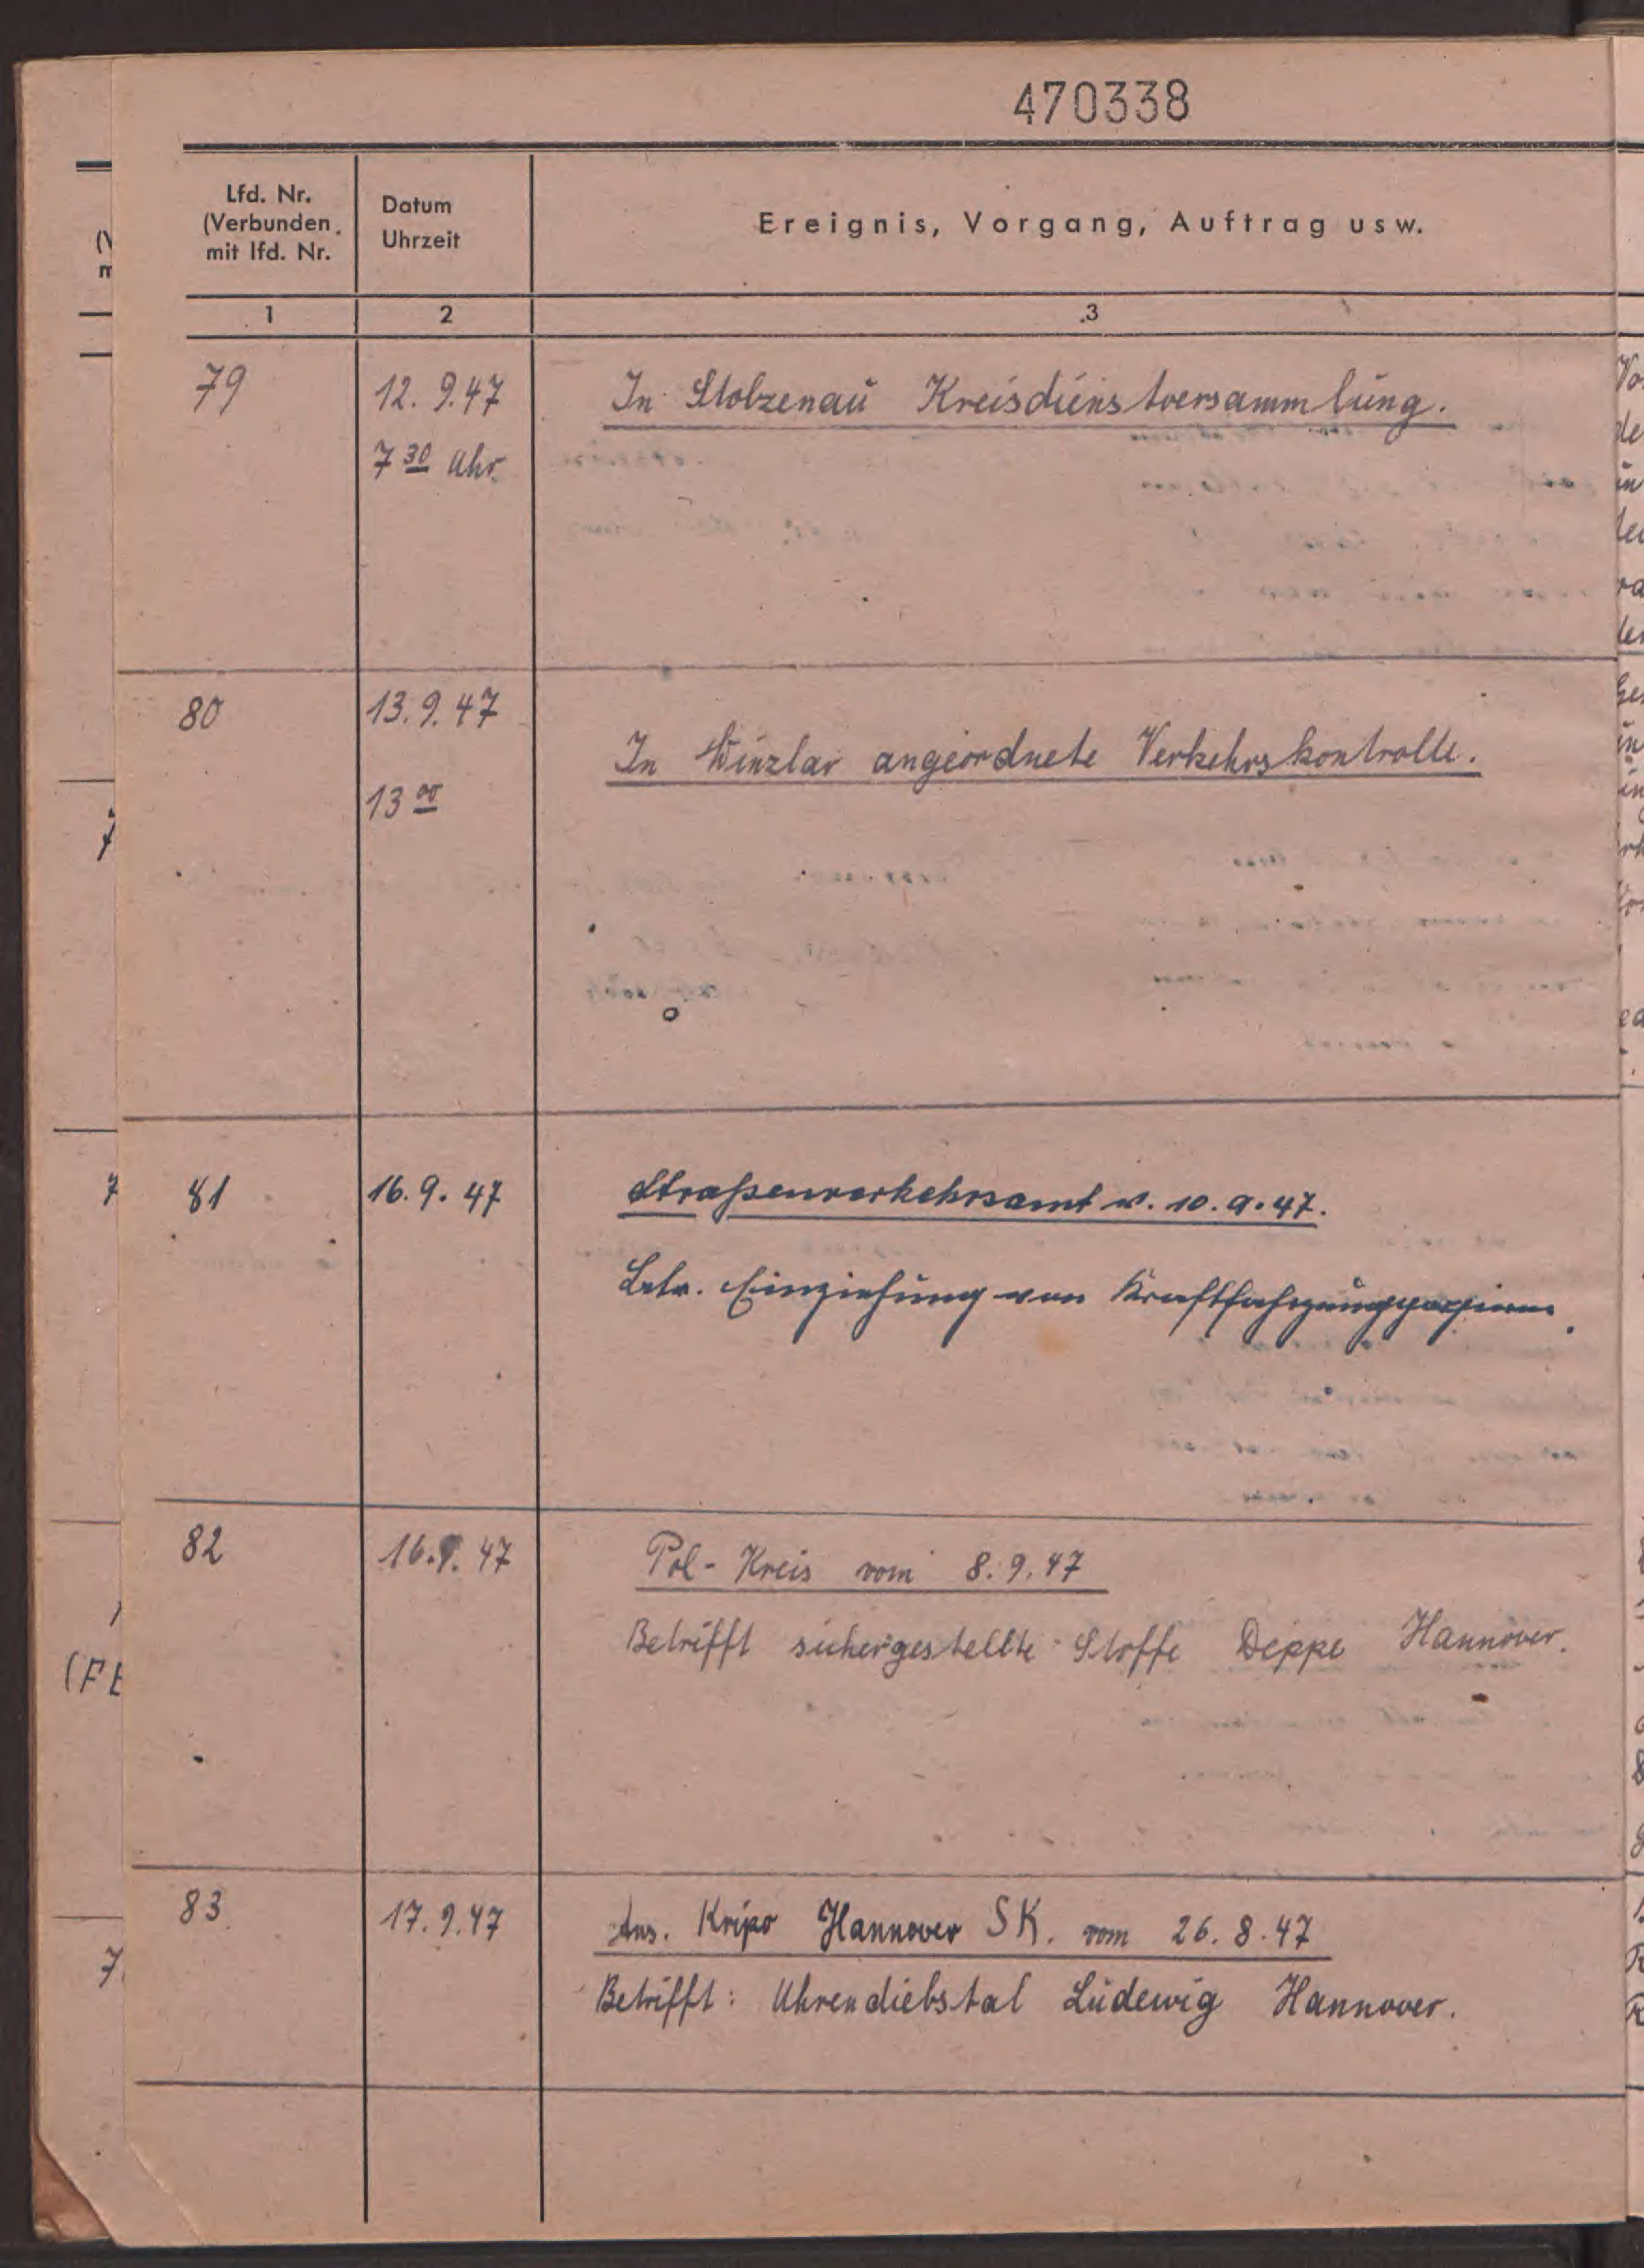 470338
Lfd. Nr.
(Verbunden
mit lfd. Nr.
Datum
Uhrzeit
Ereignis, Vorgang, Auftrag usw.
1 2 3
79 12. 9. 47 In Stolzenau Kreisdienstversammlung.
7 30 Uhr
80 13. 9. 47
In Winzlar angeordnete Verkehrskontrolle.
13 00
81 16. 9. 47 Straßenverkehrsamt v. 10. 9. 47.
Betr. Einziehung von Kraftfahrzeugpapieren.
82 16. 9. 47 Pol-Kreis vom 8. 9. 47
Betrifft sichergestellte Stoffe Deppe Hannover.
83 17. 9. 47 Ans. Kripo Hannover SK. vom 26. 8. 47
Betrifft: Uhrendiebstal Lüdewig Hannover.